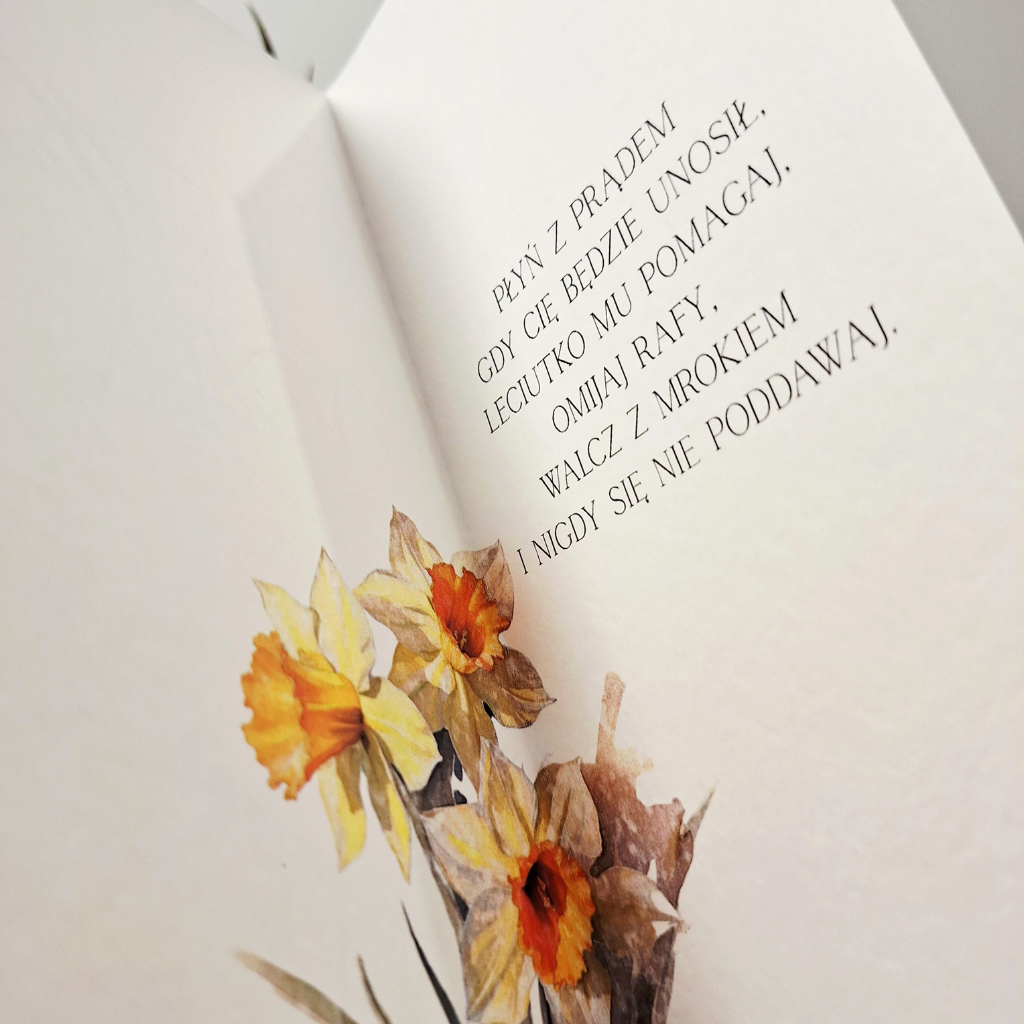 PŁYŃ Z PRĄDEM
GDY CIĘ BĘDZIE UNOSIŁ,
LECIUTKO MU POMAGAJ,
OMIJAJ RAFY,
WALCZ Z MROKIEM
I NIGDY SIĘ NIE PODDAWAJ.